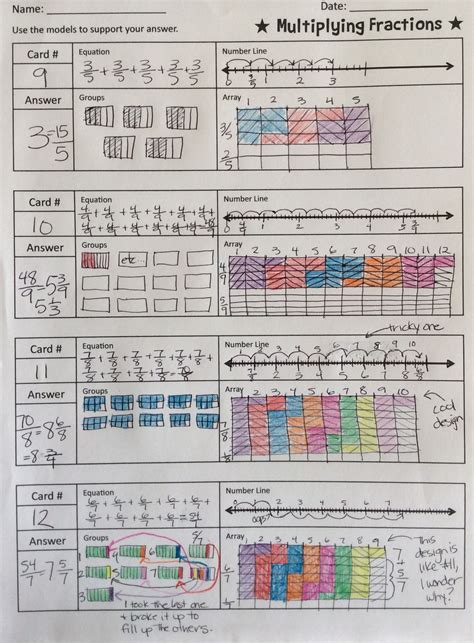 Name:
Date:
Use the models to support your answer.
★ Multiplying Fractions ★
Card #
9
Equation
3/5 + 3/5 + 3/5 + 3/5 + 3/5
Number Line
0 3/5 1 2 3
Answer
3 = 15/5
Groups
Array
1 2 3 4 5
3/5
2/5
Card #
10
Equation
4/9 + 4/9 + 4/9 + 4/9 + 4/9 +
4/9 + 4/9 + 4/9 + 4/9 + 4/9 + 4/9 + 4/9 = 48/9
Number Line
0 1 2 3 4 5
Answer
48/9 = 5 3/9
5 1/3
Groups
etc...
Array
1 2 3 4 5 6 7 8 9 10 11 12
4/9
5/9
tricky one
Card #
11
Equation
7/8 + 7/8 + 7/8 + 7/8 + 7/8 +
7/8 + 7/8 + 7/8 + 7/8 + 7/8 = 70/8
Number Line
Answer
70/8 = 8 6/8
= 8 3/4
Groups
Array
1 2 3 4 5 6 7 8 9 10
7/8
1/8
cool
design
Card #
12
Equation
6/7 + 6/7 + 6/7 + 6/7 + 6/7 +
6/7 + 6/7 + 6/7 + 6/7 = 54/7
Number Line
0 1 2 3 4 5 6 7
oops
Answer
54/7 = 7 5/7
Groups
5/7
1 4 6 7
2
3
Array
7
+
5/7
This
design is
like #11,
I wonder
why?
I took the last one
+ broke it up to
fill up the others.